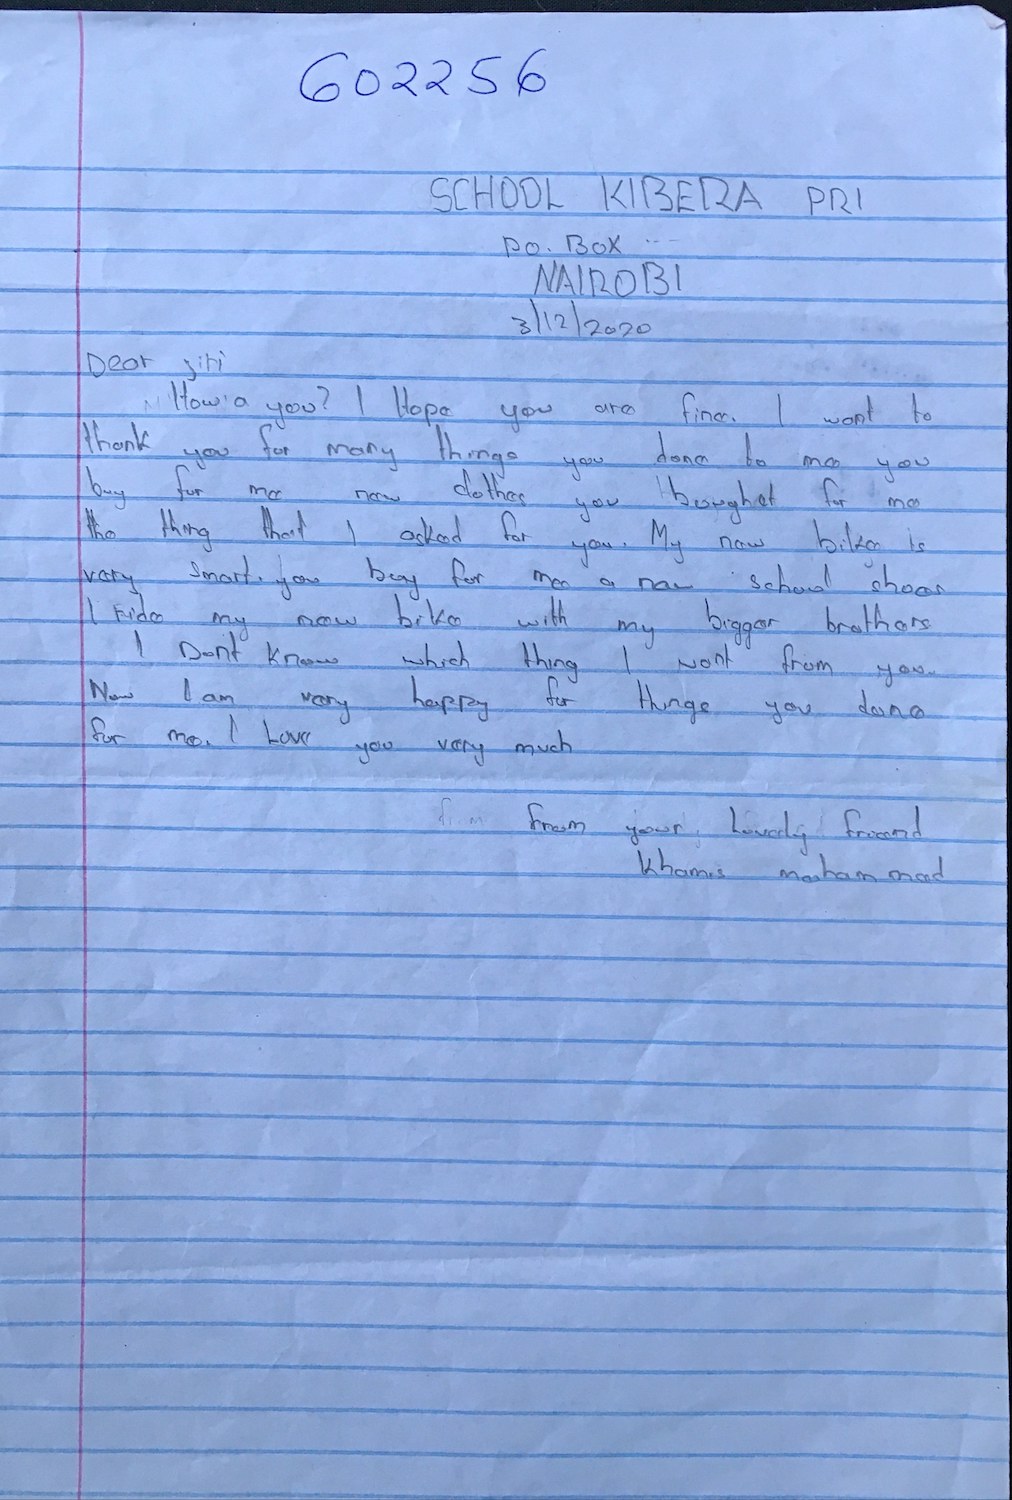 602256
SCHOOL KIBERA PRI
P.O. BOX ---
NAIROBI
3/12/2020
Dear jiri
How a you? I Hope you are fine. I want to
thank you for many things you done to me you
buy for me new clothes you boughet for me
the thing that I asked for you. My new bike is
very smart. you buy for me a new school shoes
I ride my new bike with my bigger brothers
I Dont know which thing I wont from you.
Now I am very happy for things you done
for me. I Love you very much
from from your Lovely freend
Khamis mohammed